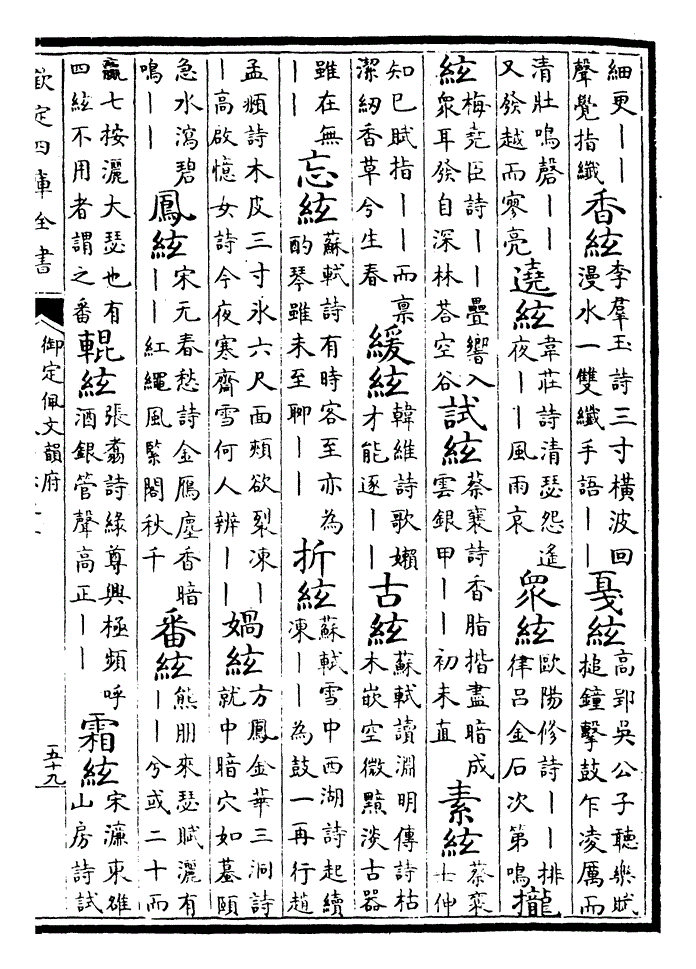 細更丨丨
聲覺指纖
香絃
李羣玉詩三寸橫波回
漫水一雙纖手語丨丨
戛絃
高郢吳公子聽樂賦
搥鐘擊鼓乍凌厲而
清壯鳴磬丨丨
又發越而寥亮
遶絃
韋莊詩清瑟怨遙
夜丨丨風雨哀
衆絃
歐陽修詩丨丨排
律呂金石次第鳴
攏
絃
梅堯臣詩丨丨疊響入
衆耳發自深林荅空谷
試絃
蔡襄詩香脂揩盡暗成
雲銀甲丨丨初未直
素絃
蔡
士仲
知巳賦指丨丨而禀
潔紉香草兮生春
緩絃
韓維詩歌嬾
才能逐丨丨
古絃
蘇軾讀淵明傳詩枯
木嵌空微黯淡古器
雖在無
丨丨
忘絃
蘇軾詩有時客至亦為
酌琴雖未至聊丨丨
折絃
蘇軾雪中西湖詩起續
凍丨丨為鼓一再行趙
孟頫詩木皮三寸氷六尺面頰欲裂凍丨
丨高啟憶女詩今夜寒齋雪何人辨丨丨
媧絃
方鳳金華三洞詩
就中暗穴如墓頤
急水瀉碧
鳴丨丨
鳳絃
宋无春愁詩金鴈塵香暗
丨丨紅繩風緊閣秋千
番絃
熊朋來瑟賦灑有
丨丨兮或二十而
贏七按灑大瑟也有
四絃不用者謂之番
輥絃
張翥詩綠尊興極頻呼
酒銀管聲高正丨丨
霜絃
宋濂東雄
山房詩試
欽定四庫全書
御定佩文韻府
五十九